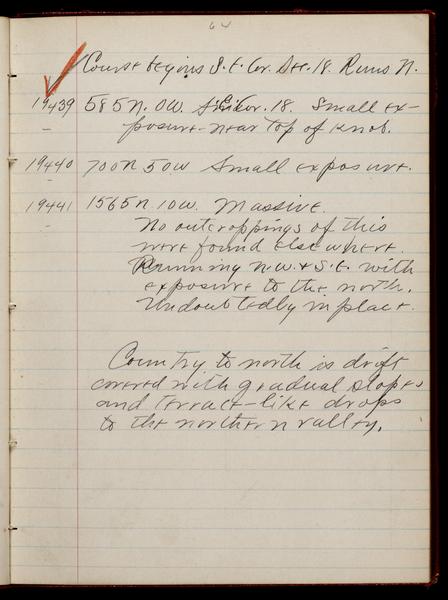 64
Course begins S.E. Cor. Sec. 18. Runs N.
19439 585 N. 0 W. S.E. Cor. 18. Small ex-
posure near top of knob.
19440 700 N 50 W Small exposure.
19441 1565 N 10 W. Massive.
No outcroppings of this
were found elsewhere.
Running N.W. & S.E. with
exposure to the north.
Undoubtedly in place.
Country to north is drift
covered with gradual slopes
and terrace-like drops
to the northern valley.